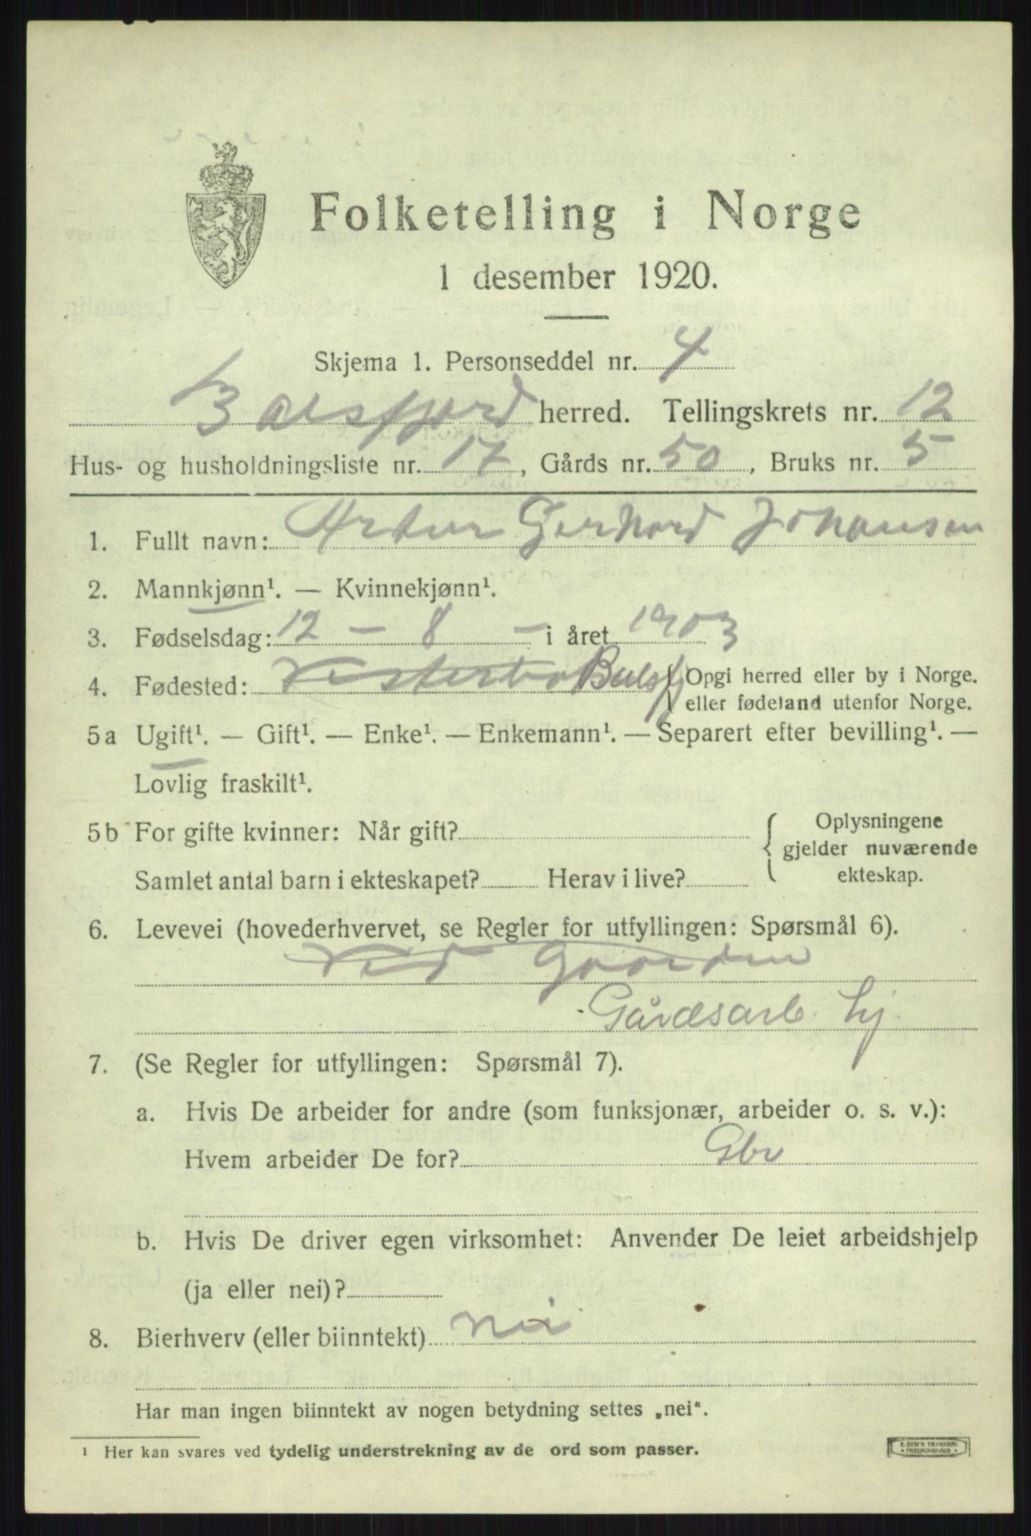 Folketelling i Norge
1 desember 1920.
Skjema 1. Personseddel nr. 4
Balsfjord herred. Tellingskrets nr. 12
Hus- og husholdningsliste nr. 17, Gårds nr. 50, Bruks nr. 5
1. Fullt navn: Artur Gerhard Johansen
2. Mannkjønn¹. — Kvinnekjønn¹.
3. Fødselsdag: 12 - 8 - i året 1903
4. Fødested: Balsfj { Opgi herred eller by i Norge.
eller fødeland utenfor Norge.
5a Ugift¹. — Gift¹. — Enke¹. — Enkemann¹. — Separert efter bevilling¹. —
Lovlig fraskilt¹.
5b For gifte kvinner: Når gift?
Samlet antal barn i ekteskapet? Herav i live?
{ Oplysningene
gjelder nuværende
ekteskap.
6. Levevei (hovederhvervet, se Regler for utfyllingen: Spørsmål 6).
Ved Gaarden
Gårdsarb. hj.
7. (Se Regler for utfyllingen: Spørsmål 7).
a. Hvis De arbeider for andre (som funksjonær, arbeider o. s. v.):
Hvem arbeider De for? Gbr
b. Hvis De driver egen virksomhet: Anvender De leiet arbeidshjelp
(ja eller nei)?
8. Bierhverv (eller biinntekt) nei
Har man ingen biinntekt av nogen betydning settes „nei".
¹ Her kan svares ved tydelig understrekning av de ord som passer.